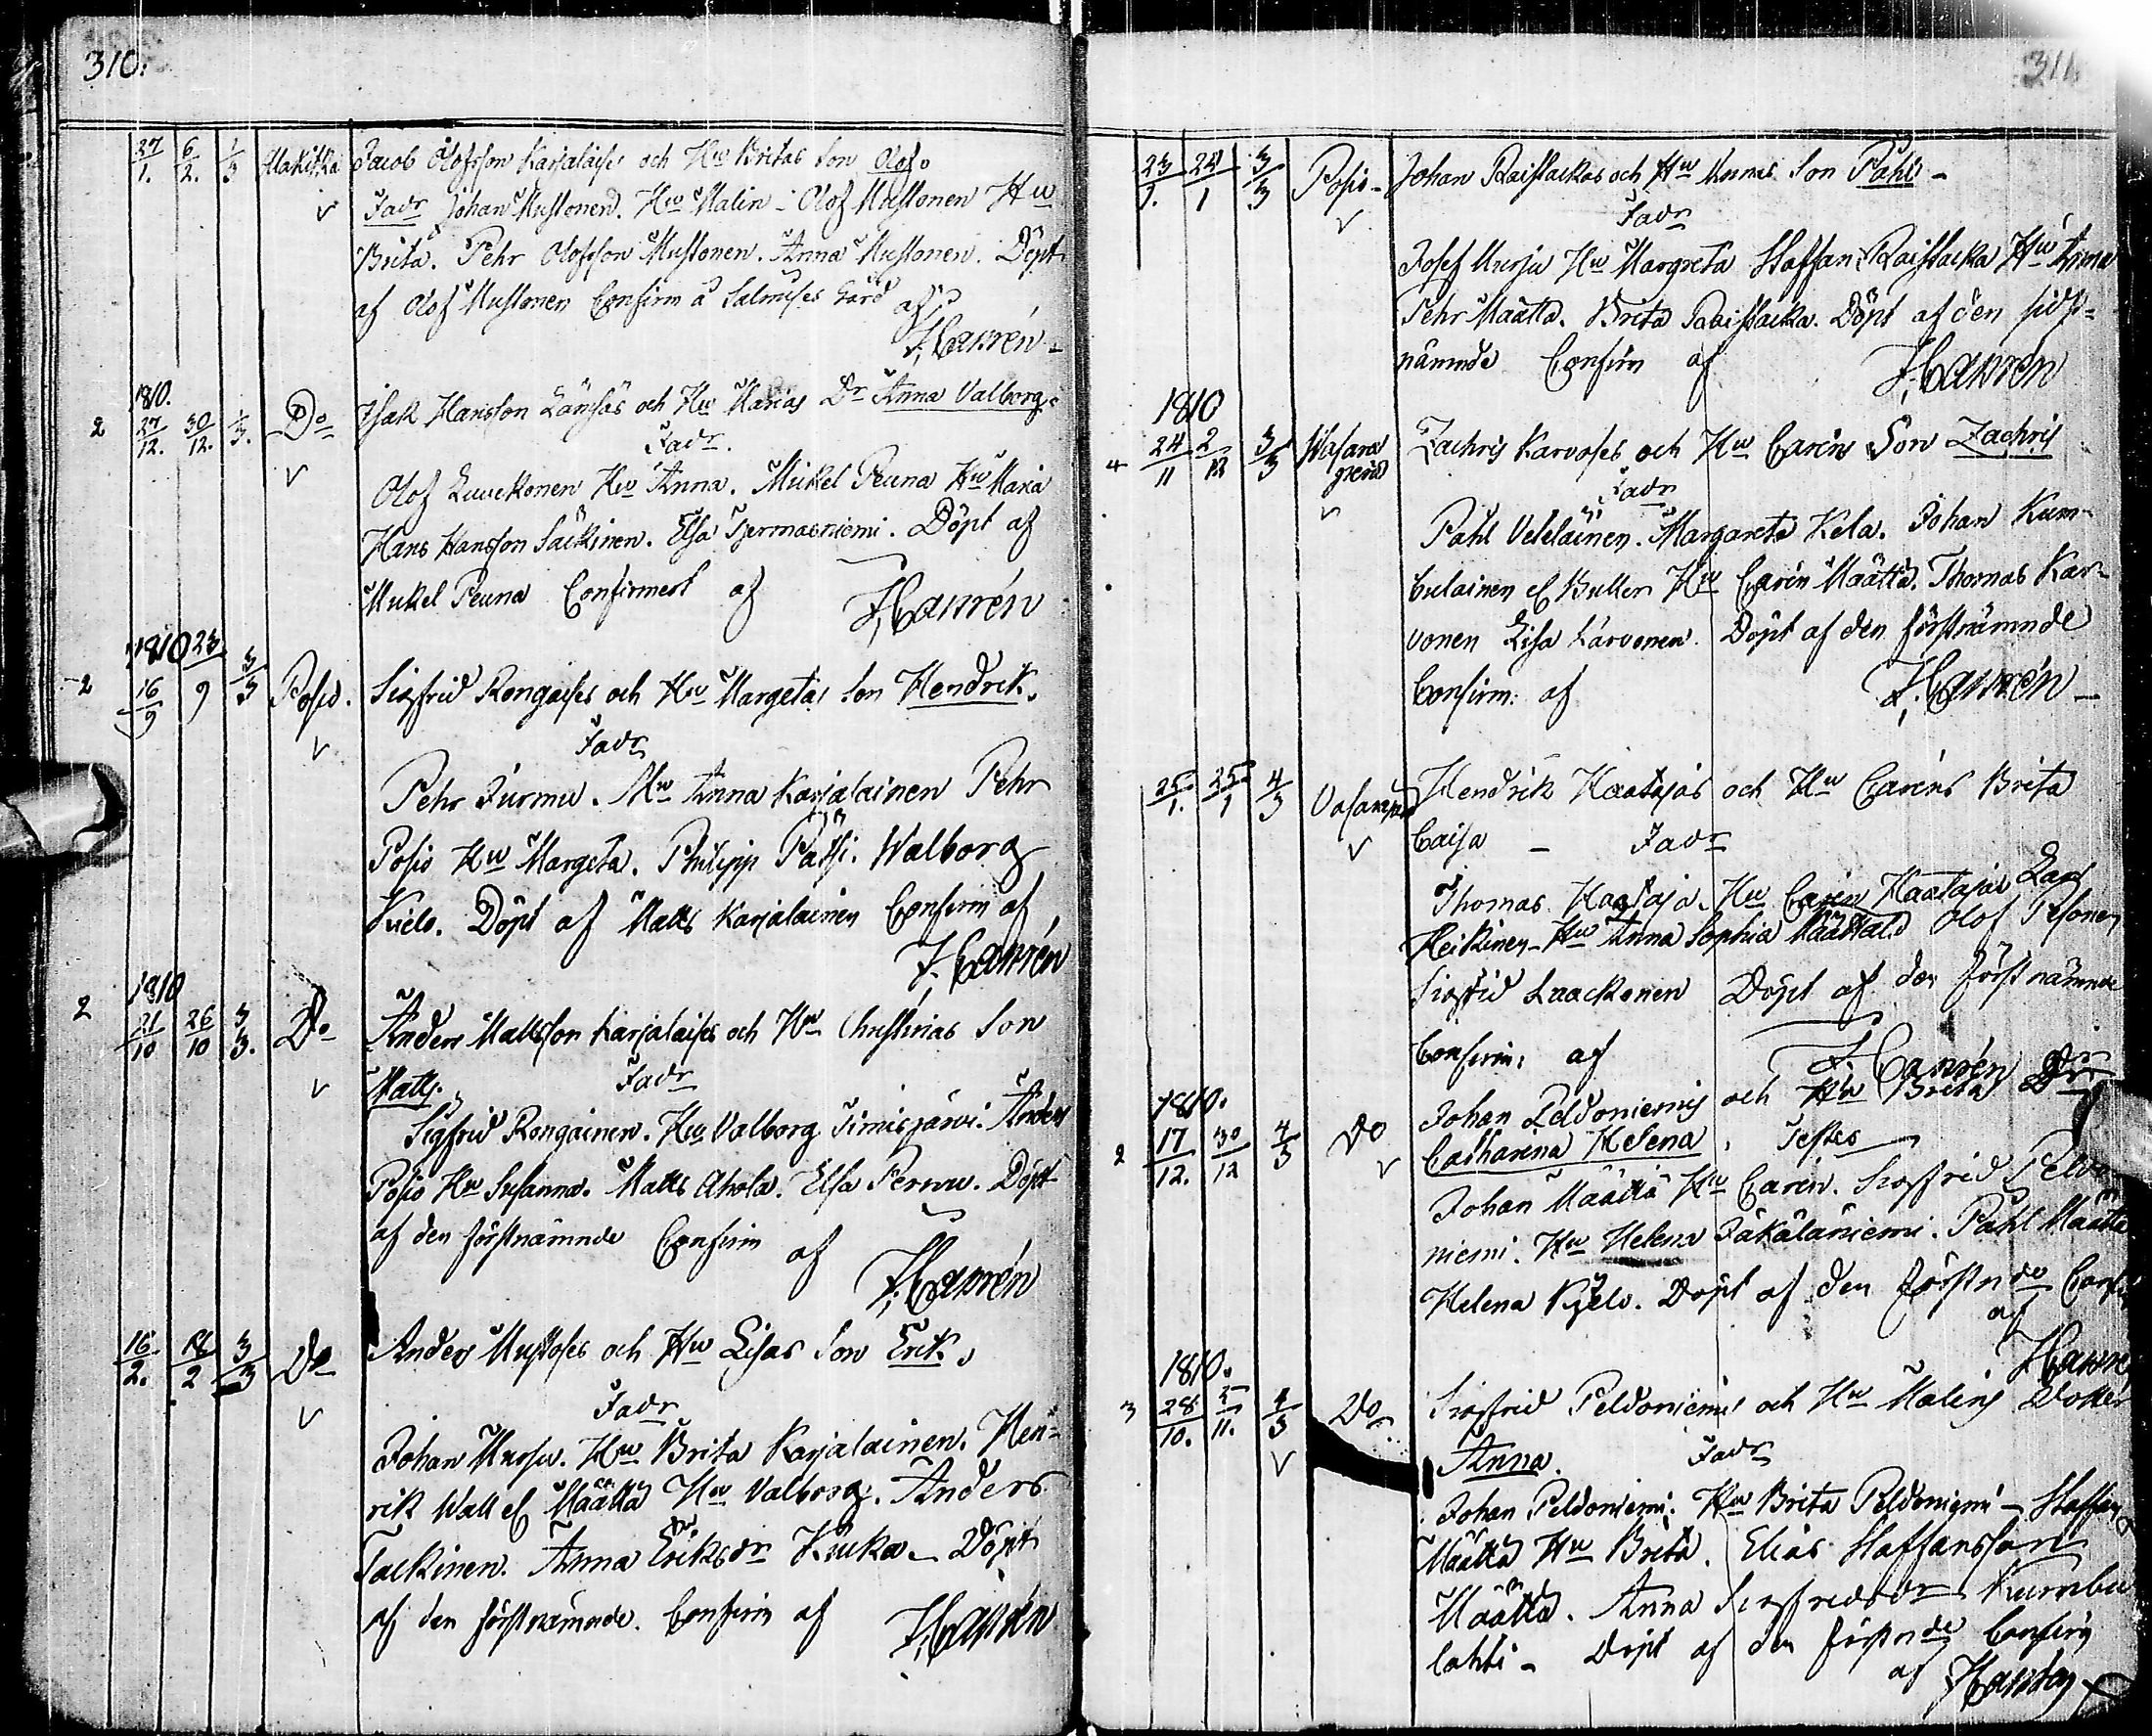 310.
27/1. 6/2. 1/3 Makitka Jacob Olofsson Karjalaises och Hu Britas Son Olof.
Fadr Johan Mustonen. Hu Malin - Olof Mustonen Hu
Brita. Pehr Olofsson Mustonen. Anna Mustonen. Döpt
af Olof Mustonen Confirm å Salmises Gård af
F. Canrén
1810.
2 27/12. 30/12. 1/3. Do Isak Hansson Lämsäs och Hu Marias Dr Anna Valborg.
Fadr.
Olof Luuckonen Hu Anna. Mickel Peuna Hu Maria
Hans Hansson Säckinen. Elsa Tjermasniemi. Döpt af
Mickel Peuna Confirmert af F. Canrén
1810 23
2 16/9 9 3/3 Posio. Sigfrid Rongaises och Hu Margetas Son Hendrik.
Fadr
Pehr Jurmu. Hu Anna Karjalainen Pehr
Posio Hu Margeta. Philipp Pätsi. Walborg
Kielo. Döpt af Matts Karjalainen Confirm af
F. Canrén
1810
2 21/10 26/10 3/3. Do Anders Mattsson Karjalaises och Hu Christinas Son
Matts. Fadr
Sigfrid Rongainen. Hu Valborg Simisjärvi. Anders
Posio Hu Susanna. Matts Ahola. Elsa Pernu. Döpt
af den förstnämnde Confirm af
F. Canrén
16/2. 18/2 3/3 Do Anders Mustoses och Hu Lisas Son Erik.
Fadr
Johan Mursu. Hu Brita Karjalainen. Hen-
rik Wall el Määttä Hu Valborg. Anders
Tackinen. Anna Eriksdr Kuka - Döpt
af den förstnämnde. Confirm af F. Canrén
311
23/1. 24/1 3/3 Posio - Johan Raistackas och Hu Annas Son Pahl -
Fadr
Josef Mursu Hu Margreta Staffan Raistacka Hu Anna
Pehr Määtta. Brita Raistacka. Döpt af den sidst-
nämnde Confirm af F. Canrén
1810
4 24/11 2/12 3/3 Wasara perä Zachris Karvoses och Hu Carins Son Zachris
Fadr
Pahl Veteläinen. Margareta Kela. Johan Kum-
bulainen el Buller Hu Carin Määttä. Thomas Kar-
vonen Lisa Karvonen. Döpt af den förstnämnde
Confirm: af F. Canrén
25/1. 25/1 4/3 Vasarap Hendrik Haatajas och Hu Carins Brita
Caisa - Fadr
Thomas Haataja. Hu Carin Haataja Lars
Heikinen - Hu Anna Sophia Määttä. Olof Pesonen
Sigfrid Laackonen Döpt af den förstnämnde
Confirm: af F. Canrén
1810.
2 17/12. 30/12 4/3 Do Johan Peldoniemis och Hu Brita Dr
Catharina Helena. Testes
Johan Määttä Hu Carin. Sigfrid Peldo
niemi. Hu Helena Jäkäläniemi. Pahl Määtta
Helena Kyelo. Döpt af den förstnde Conf
af
1810.
3 28/10. 5/11. 4/3 Do Sigfrid Peldoniemis och Hu Malins Dotter
Anna. Fadr
Johan Peldoniemi. Hu Brita Peldoniemi - Staffan
Määttä Hu Brita. Elias Staffansson
Määtta. Anna Sigfridsdr Kumbu
lahti - Döpt af den förstnde Confirm
af F. Canrén